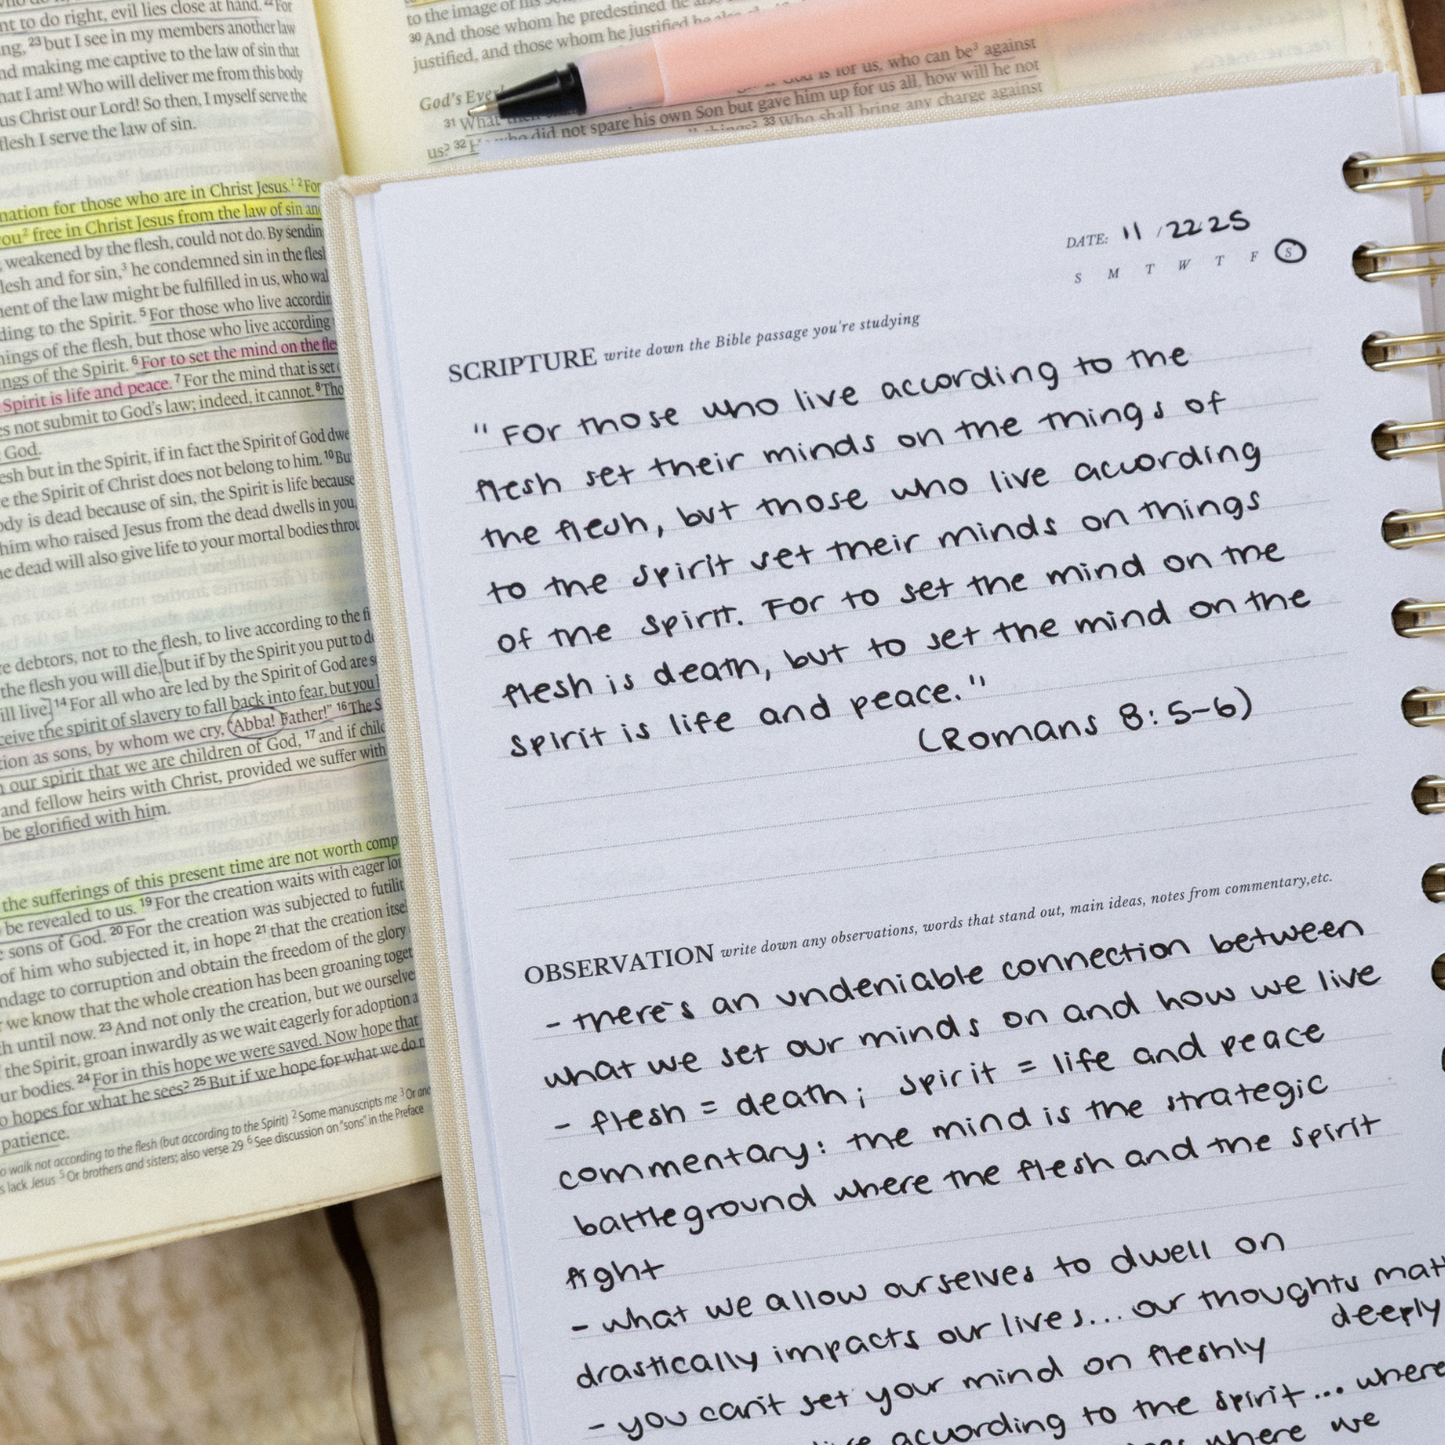 nt to do right, evil lies close at hand. 22 For
ng, 23 but I see in my members another law
nd making me captive to the law of sin that
hat I am! Who will deliver me from this body
us Christ our Lord! So then, I myself serve the
flesh I serve the law of sin.
nation for those who are in Christ Jesus.1 2 For
you2 free in Christ Jesus from the law of sin an
weakened by the flesh, could not do. By sendin
flesh and for sin,3 he condemned sin in the flesh
ment of the law might be fulfilled in us, who wal
ding to the Spirit. 5 For those who live accordi
hings of the flesh, but those who live according
ngs of the Spirit. 6 For to set the mind on the fle
Spirit is life and peace. 7 For the mind that is set
es not submit to God's law; indeed, it cannot. 8 Tho
God.
esh but in the Spirit, if in fact the Spirit of God dwe
e the Spirit of Christ does not belong to him. 10 Bu
ody is dead because of sin, the Spirit is life because
him who raised Jesus from the dead dwells in you,
he dead will also give life to your mortal bodies throu
re debtors, not to the flesh, to live according to the fl
the flesh you will die, but if by the Spirit you put to d
ill live. 14 For all who are led by the Spirit of God are s
ceive the spirit of slavery to fall back into fear, but you
tion as sons, by whom we cry, "Abba! Father!" 16 The S
our spirit that we are children of God, 17 and if child
and fellow heirs with Christ, provided we suffer with
be glorified with him.
the sufferings of this present time are not worth comp
be revealed to us. 19 For the creation waits with eager lon
sons of God. 20 For the creation was subjected to futilit
of him who subjected it, in hope 21 that the creation itse
ndage to corruption and obtain the freedom of the glory
we know that the whole creation has been groaning toget
h until now. 23 And not only the creation, but we ourselve
the Spirit, groan inwardly as we wait eagerly for adoption a
ur bodies. 24 For in this hope we were saved. Now hope that
o hopes for what he sees? 25 But if we hope for what we do n
patience.
o walk not according to the flesh (but according to the Spirit) 2 Some manuscripts me 3 Or and
s lack Jesus 5 Or brothers and sisters; also verse 29 6 See discussion on "sons" in the Preface
to the image of his
30 And those whom he predestined he also
justified, and those whom he justified he also
God's Ever
31 What then is for us, who can be3 against
us? 32 He who did not spare his own Son but gave him up for us all, how will he not
things? 33 Who shall bring any charge against
DATE: 11 / 22 25
S M T W T F S
SCRIPTURE write down the Bible passage you're studying
"For those who live according to the
flesh set their minds on the things of
the flesh, but those who live according
to the spirit set their minds on things
of the spirit. For to set the mind on the
flesh is death, but to set the mind on the
spirit is life and peace."
(Romans 8:5-6)
OBSERVATION write down any observations, words that stand out, main ideas, notes from commentary,etc.
- there's an undeniable connection between
what we set our minds on and how we live
- flesh = death; spirit = life and peace
commentary: the mind is the strategic
battleground where the flesh and the spirit
fight
- what we allow ourselves to dwell on
drastically impacts our lives... our thoughts matt
deeply
- you can't set your mind on fleshly
according to the spirit... where
where we